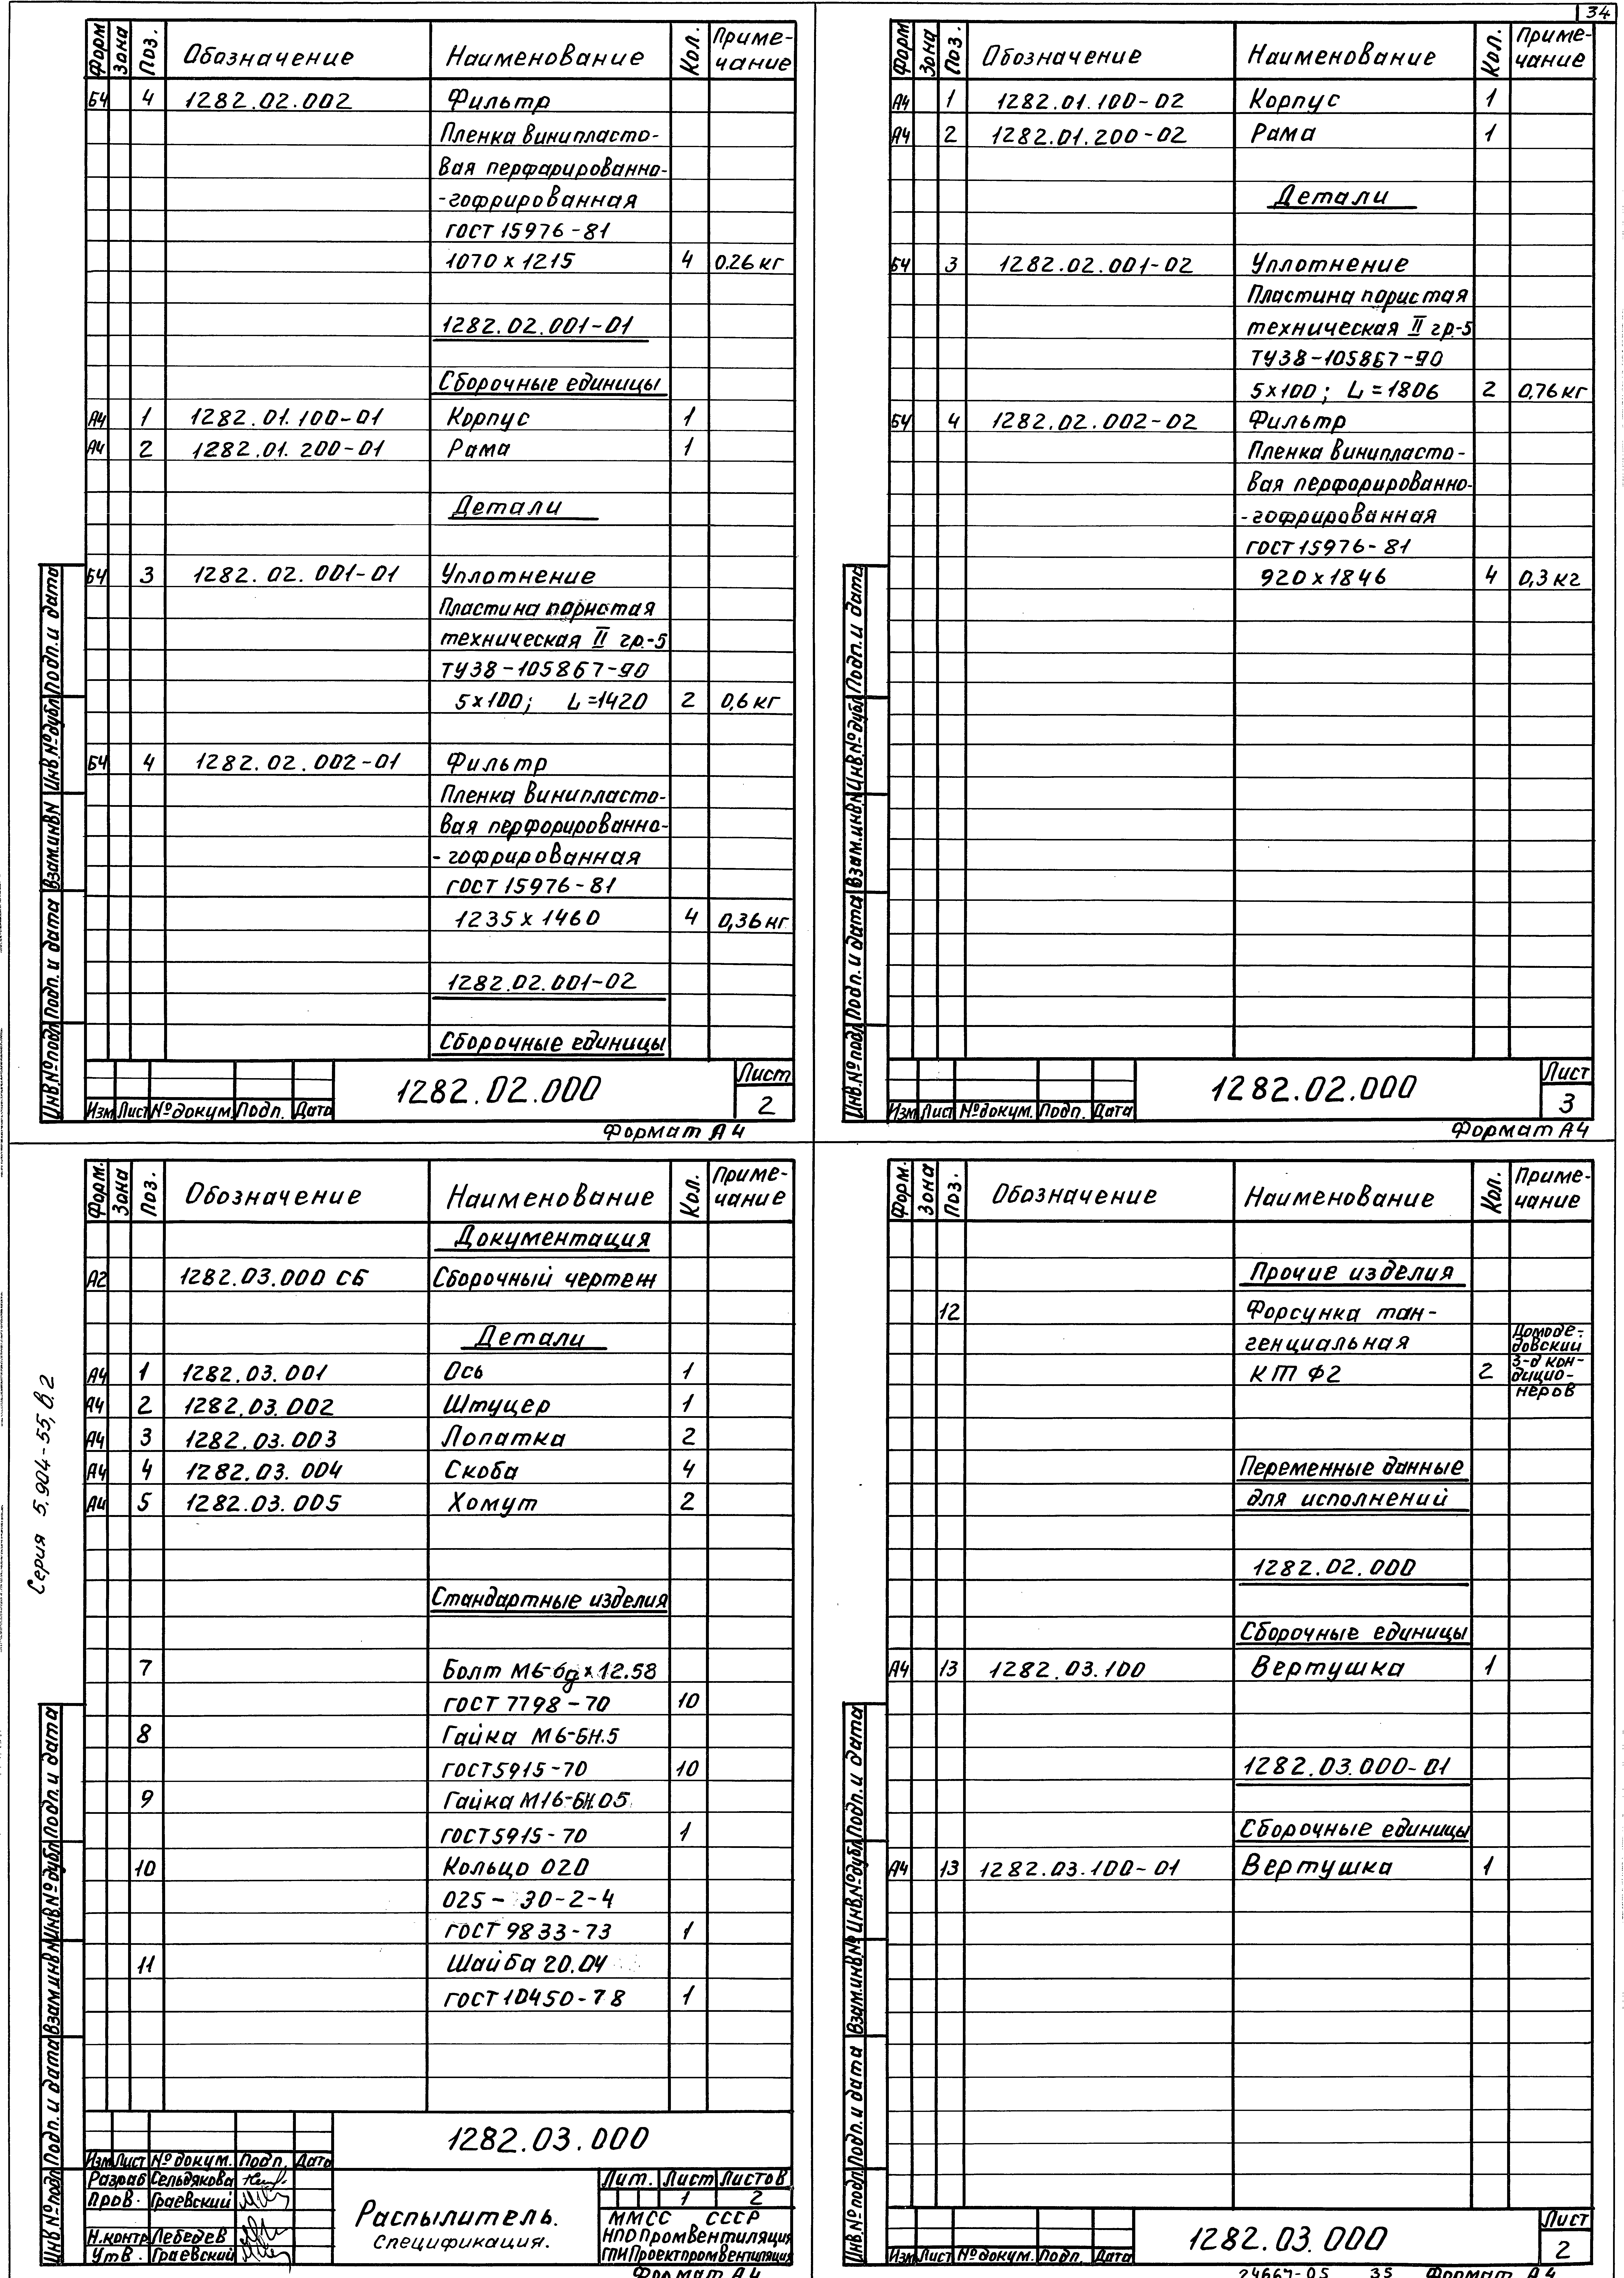 34
Форм Зона Поз. Обозначение Наименование Кол. Приме-
чание
БЧ 4 1282.02.002 Фильтр
Пленка винипласто-
вая перфарированно-
-гофрированная
ГОСТ 15976-81
1070 х 1215 4 0.26 кг
1282.02.001-01
Сборочные единицы
А4 1 1282.01.100-01 Корпус 1
А4 2 1282.01.200-01 Рама 1
Детали
БЧ 3 1282.02.001-01 Уплотнение
Пластина пористая
техническая II гр.-5
ТУ38-105867-90
5х100; L=1420 2 0,6 кг
БЧ 4 1282.02.002-01 Фильтр
Пленка винипласто-
вая перфорированно-
-гофрированная
ГОСТ 15976-81
1235 х 1460 4 0,36 кг
1282.02.001-02
Сборочные единицы
Инв.№подл Подп. и дата Взам.инв N Инв.№дубл Подп. и дата
Изм Лист №докум. Подп. Дата
1282.02.000
Лист
2
Формат А4
Форм Зона Поз. Обозначение Наименование Кол. Приме-
чание
А4 1 1282.01.100-02 Корпус 1
А4 2 1282.01.200-02 Рама 1
Детали
БЧ 3 1282.02.001-02 Уплотнение
Пластина пористая
техническая II гр-5
ТУ38-105867-90
5х100; L=1806 2 0,76 кг
БЧ 4 1282.02.002-02 Фильтр
Пленка винипласто-
вая перфорированно-
-гофрированная
ГОСТ 15976-81
920 х 1846 4 0,3 кг
Инв.№подл Подп. и дата Взам.инв.№ Инв.№дубл Подп. и дата
Изм Лист №докум. Подп. Дата
1282.02.000
Лист
3
Формат А4
Серия 5.904-55, в.2
Форм. Зона Поз. Обозначение Наименование Кол. Приме-
чание
Документация
А2 1282.03.000 СБ Сборочный чертеж
Детали
А4 1 1282.03.001 Ось 1
А4 2 1282.03.002 Штуцер 1
А4 3 1282.03.003 Лопатка 2
А4 4 1282.03.004 Скоба 4
А4 5 1282.03.005 Хомут 2
Стандартные изделия
7 Болт М6-6g х 12.58
ГОСТ 7798-70 10
8 Гайка М6-6Н.5
ГОСТ5915-70 10
9 Гайка М16-6Н.05
ГОСТ5915-70 1
10 Кольцо 020
025-30-2-4
ГОСТ 9833-73 1
11 Шайба 20.04
ГОСТ 10450-78 1
Инв.№подл Подп. и дата Взам.инв № Инв.№дубл Подп. и дата
1282.03.000
Изм Лист №докум. Подп. Дата
Разраб Сельдякова
Пров. Граевский
Н.контр Лебедев
Утв. Граевский
Распылитель.
Спецификация.
Лит. Лист Листов
1 2
ММСС СССР
НПОПромвентиляция
ГПИПроектпромвентиляция
Формат А4
Форм. Зона Поз. Обозначение Наименование Кол. Приме-
чание
Прочие изделия
12 Форсунка тан-
генциальная
КТ Ф2 2
Домоде-
довский
з-д кон-
дицио-
неров
Переменные данные
для исполнений
1282.02.000
Сборочные единицы
А4 13 1282.03.100 Вертушка 1
1282.03.000-01
Сборочные единицы
А4 13 1282.03.100-01 Вертушка 1
Инв.№подл Подп. и дата Взам.инв.№ Инв.№дубл Подп. и дата
Изм Лист №докум. Подп. Дата
1282.03.000
Лист
2
24667-05 35 Формат А4